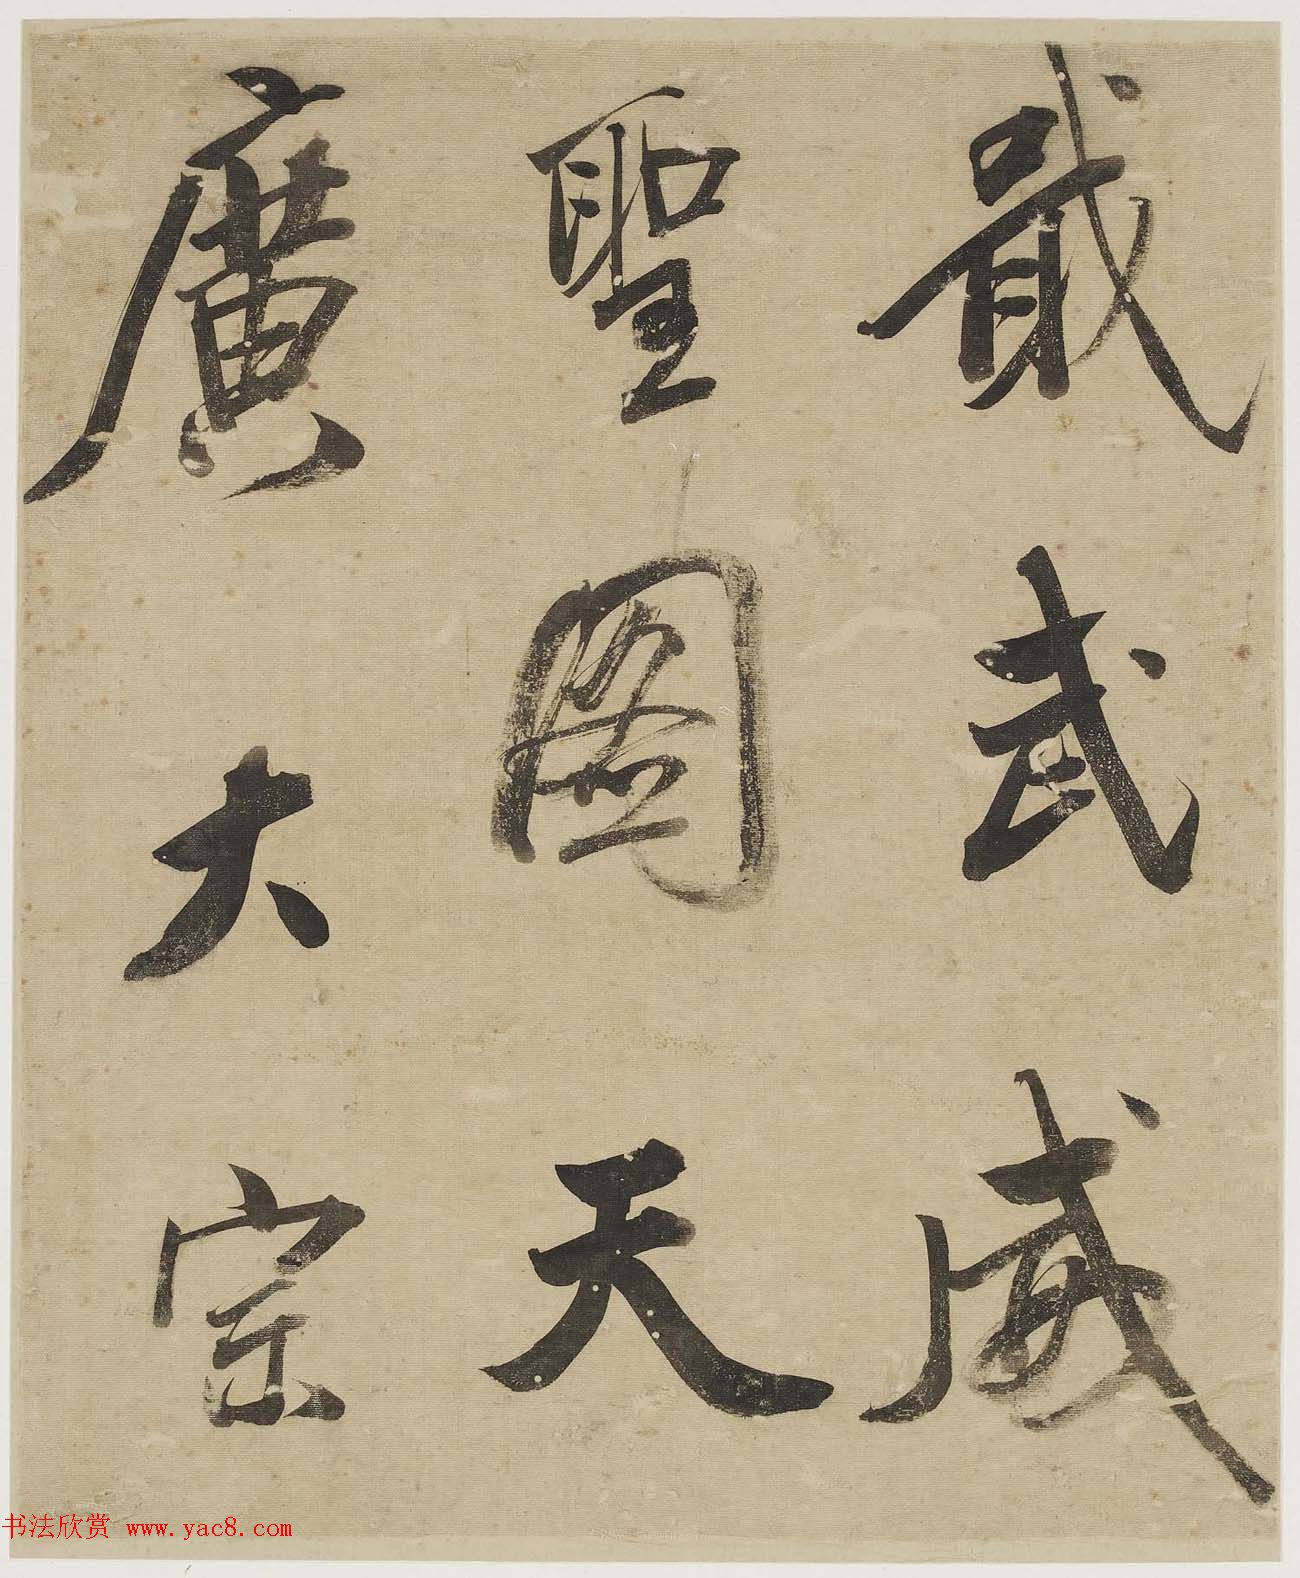 戢武威
聖圖天
廣大宗
书法欣赏 www.yac8.com